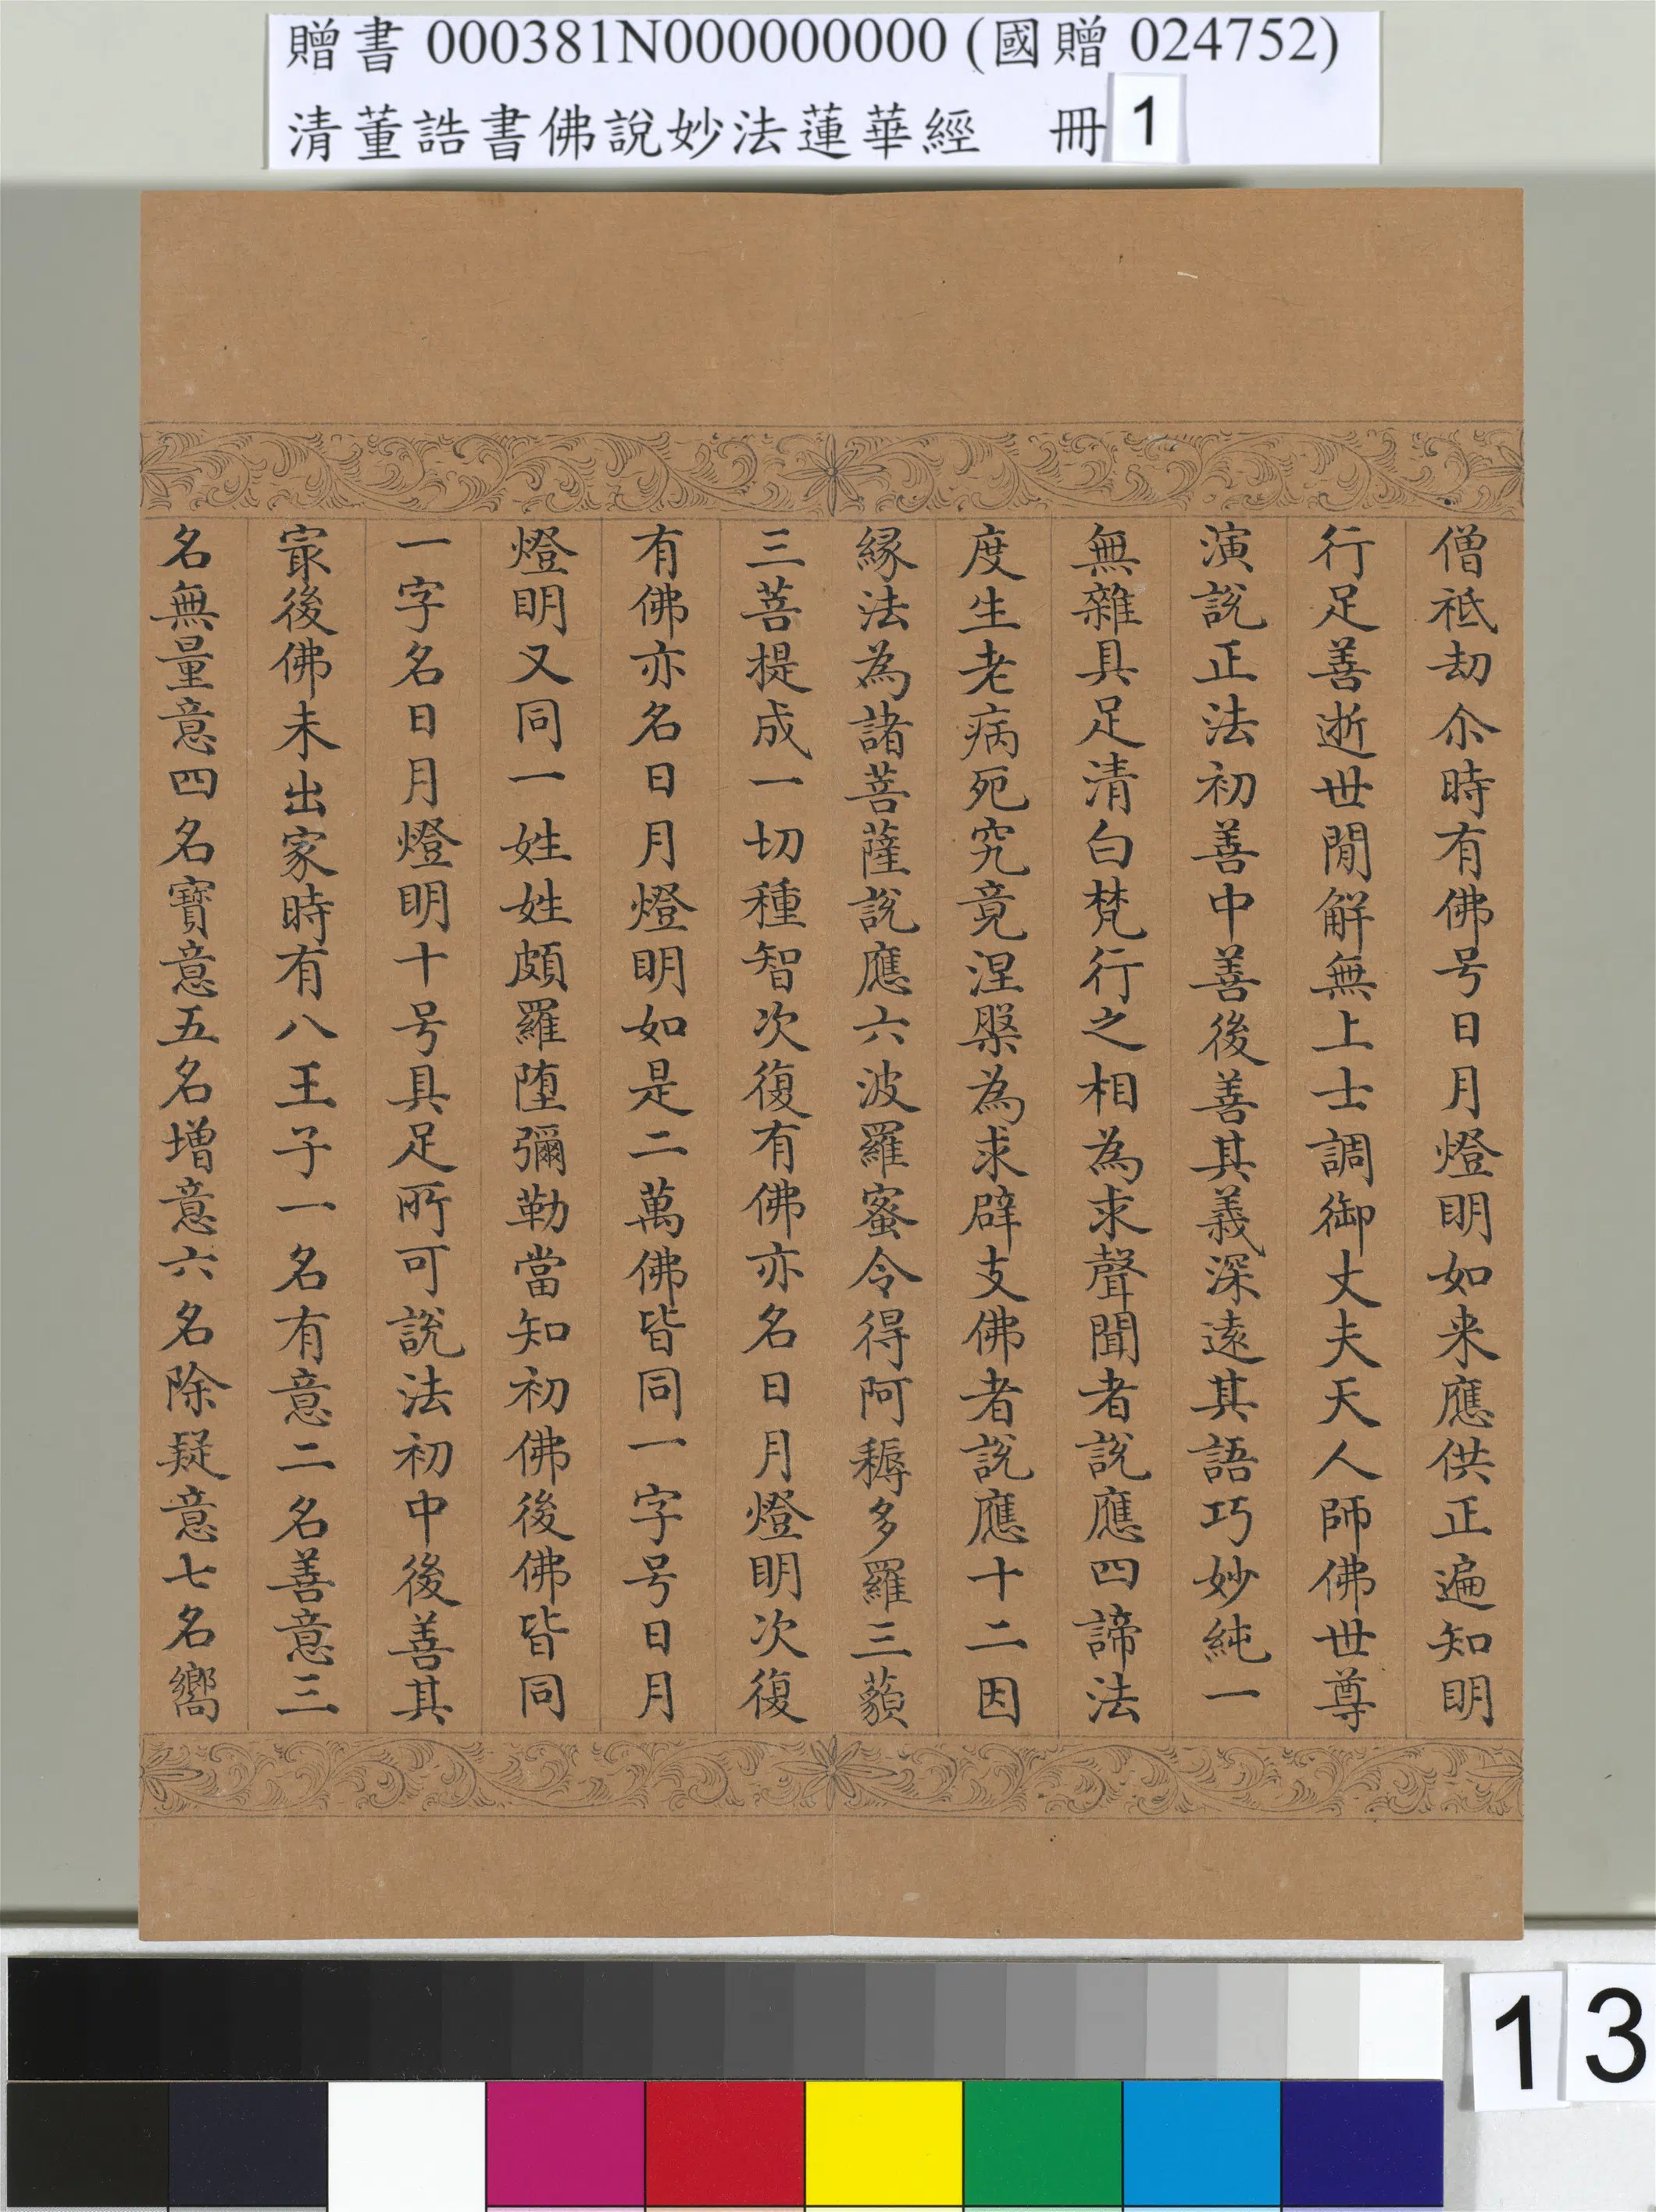 贈書 000381N000000000 (國贈 024752)
清董誥書佛說妙法蓮華經 冊 1
僧祇劫尒時有佛号日月燈明如来應供正遍知明
行足善逝世閒解無上士調御丈夫天人師佛世尊
演說正法初善中善後善其義深遠其語巧妙純一
無雜具足清白梵行之相為求聲聞者說應四諦法
度生老病死究竟涅槃為求辟支佛者說應十二因
縁法為諸菩薩說應六波羅蜜令得阿耨多羅三藐
三菩提成一切種智次復有佛亦名日月燈明次復
有佛亦名日月燈明如是二萬佛皆同一字号日月
燈明又同一姓姓頗羅堕彌勒當知初佛後佛皆同
一字名日月燈明十号具足所可說法初中後善其
㝡後佛未出家時有八王子一名有意二名善意三
名無量意四名寶意五名增意六名除疑意七名嚮
13